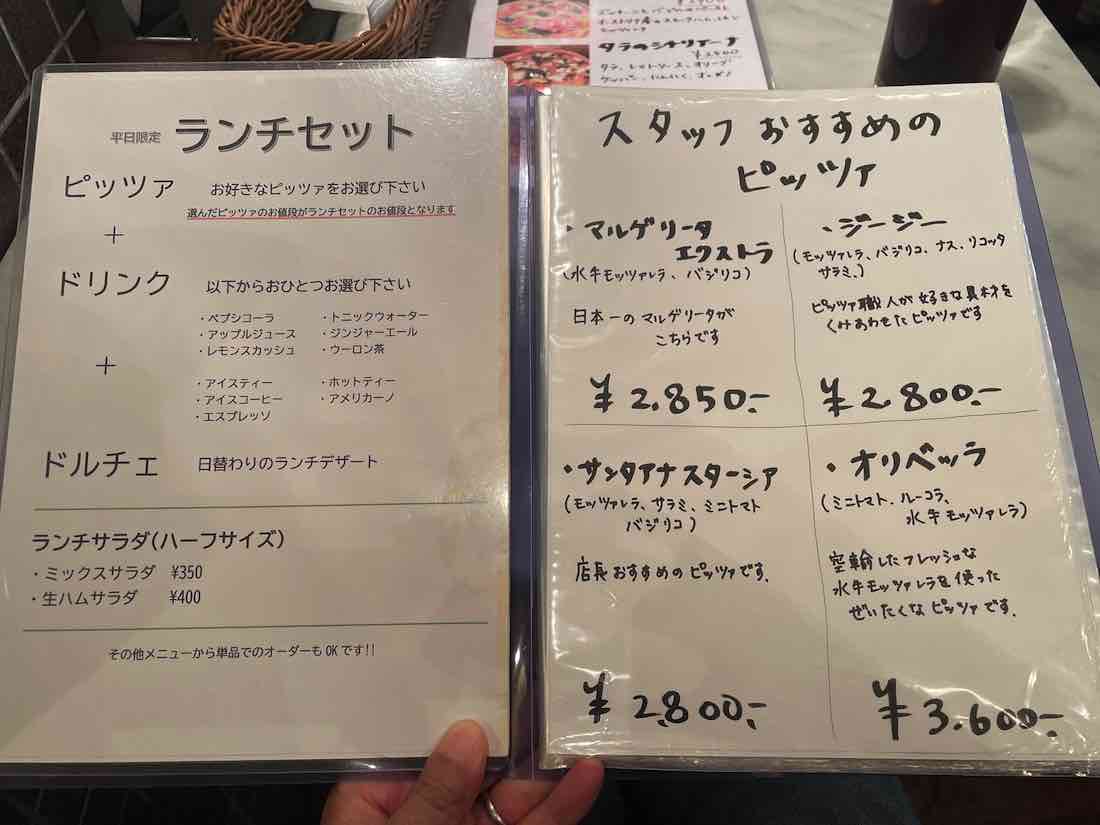 タラのシチリアーナ
¥2800
平日限定 ランチセット
ピッツァ お好きなピッツァをお選び下さい
選んだピッツァのお値段がランチセットのお値段となります
＋
ドリンク 以下からおひとつお選び下さい
・ペプシコーラ ・トニックウォーター
・アップルジュース ・ジンジャーエール
・レモンスカッシュ ・ウーロン茶
＋
・アイスティー ・ホットティー
・アイスコーヒー ・アメリカーノ
・エスプレッソ
ドルチェ 日替わりのランチデザート
ランチサラダ(ハーフサイズ)
・ミックスサラダ ¥350
・生ハムサラダ ¥400
その他メニューから単品でのオーダーもOKです!!
スタッフおすすめの
ピッツァ
・マルゲリータ
エクストラ
(水牛モッツァレラ、バジリコ)
日本一のマルゲリータが
こちらです
¥2,850.-
・ジージー
(モッツァレラ、バジリコ、ナス、リコッタ
サラミ、)
ピッツァ職人が好きな具材を
くみあわせたピッツァです
¥2,800.-
・サンタアナスターシア
(モッツァレラ、サラミ、ミニトマト
バジリコ)
店長おすすめのピッツァです.
¥2,800.-
・オリベッラ
(ミニトマト、ルーコラ、
水牛モッツァレラ)
空輸したフレッシュな
水牛モッツァレラを使った
ぜいたくなピッツァです.
¥3,600.-